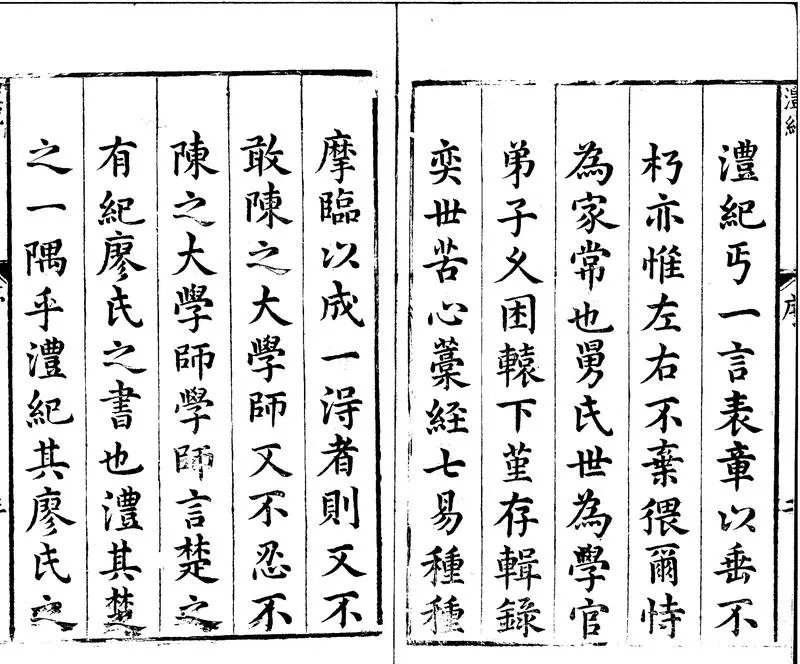 澧紀
序
澧紀丐一言表章以垂不
朽亦惟左右不棄猥爾恃
為家常也舅氏世為學官
弟子久困轅下堇存輯錄
奕世苦心藁経七易種種
摩臨以成一淂者則又不
敢陳之大學師又不忍不
陳之大學師學師言楚之
有紀廖氏之書也澧其楚
之一隅乎澧紀其廖氏之